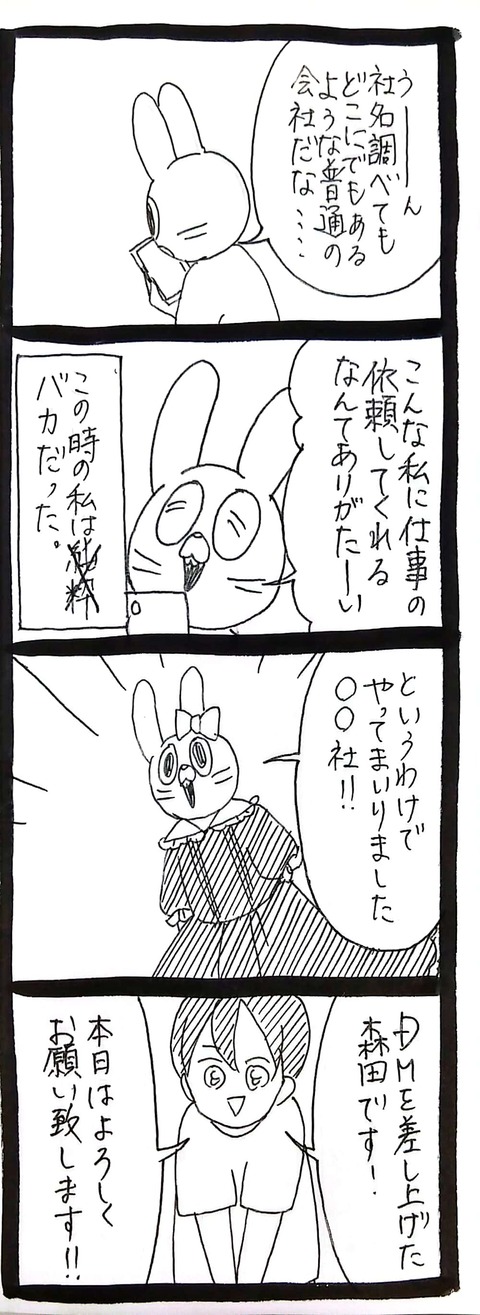 うーーん
社名調べても
どこにでもある
ような普通の
会社だな‥‥
こんな私に仕事の
依頼してくれる
なんてありがたーい
この時の私は純粋
バカだった。
というわけで
やってまいりました
〇〇社!!
DMを差し上げた
森田です!
本日はよろしく
お願い致します!!